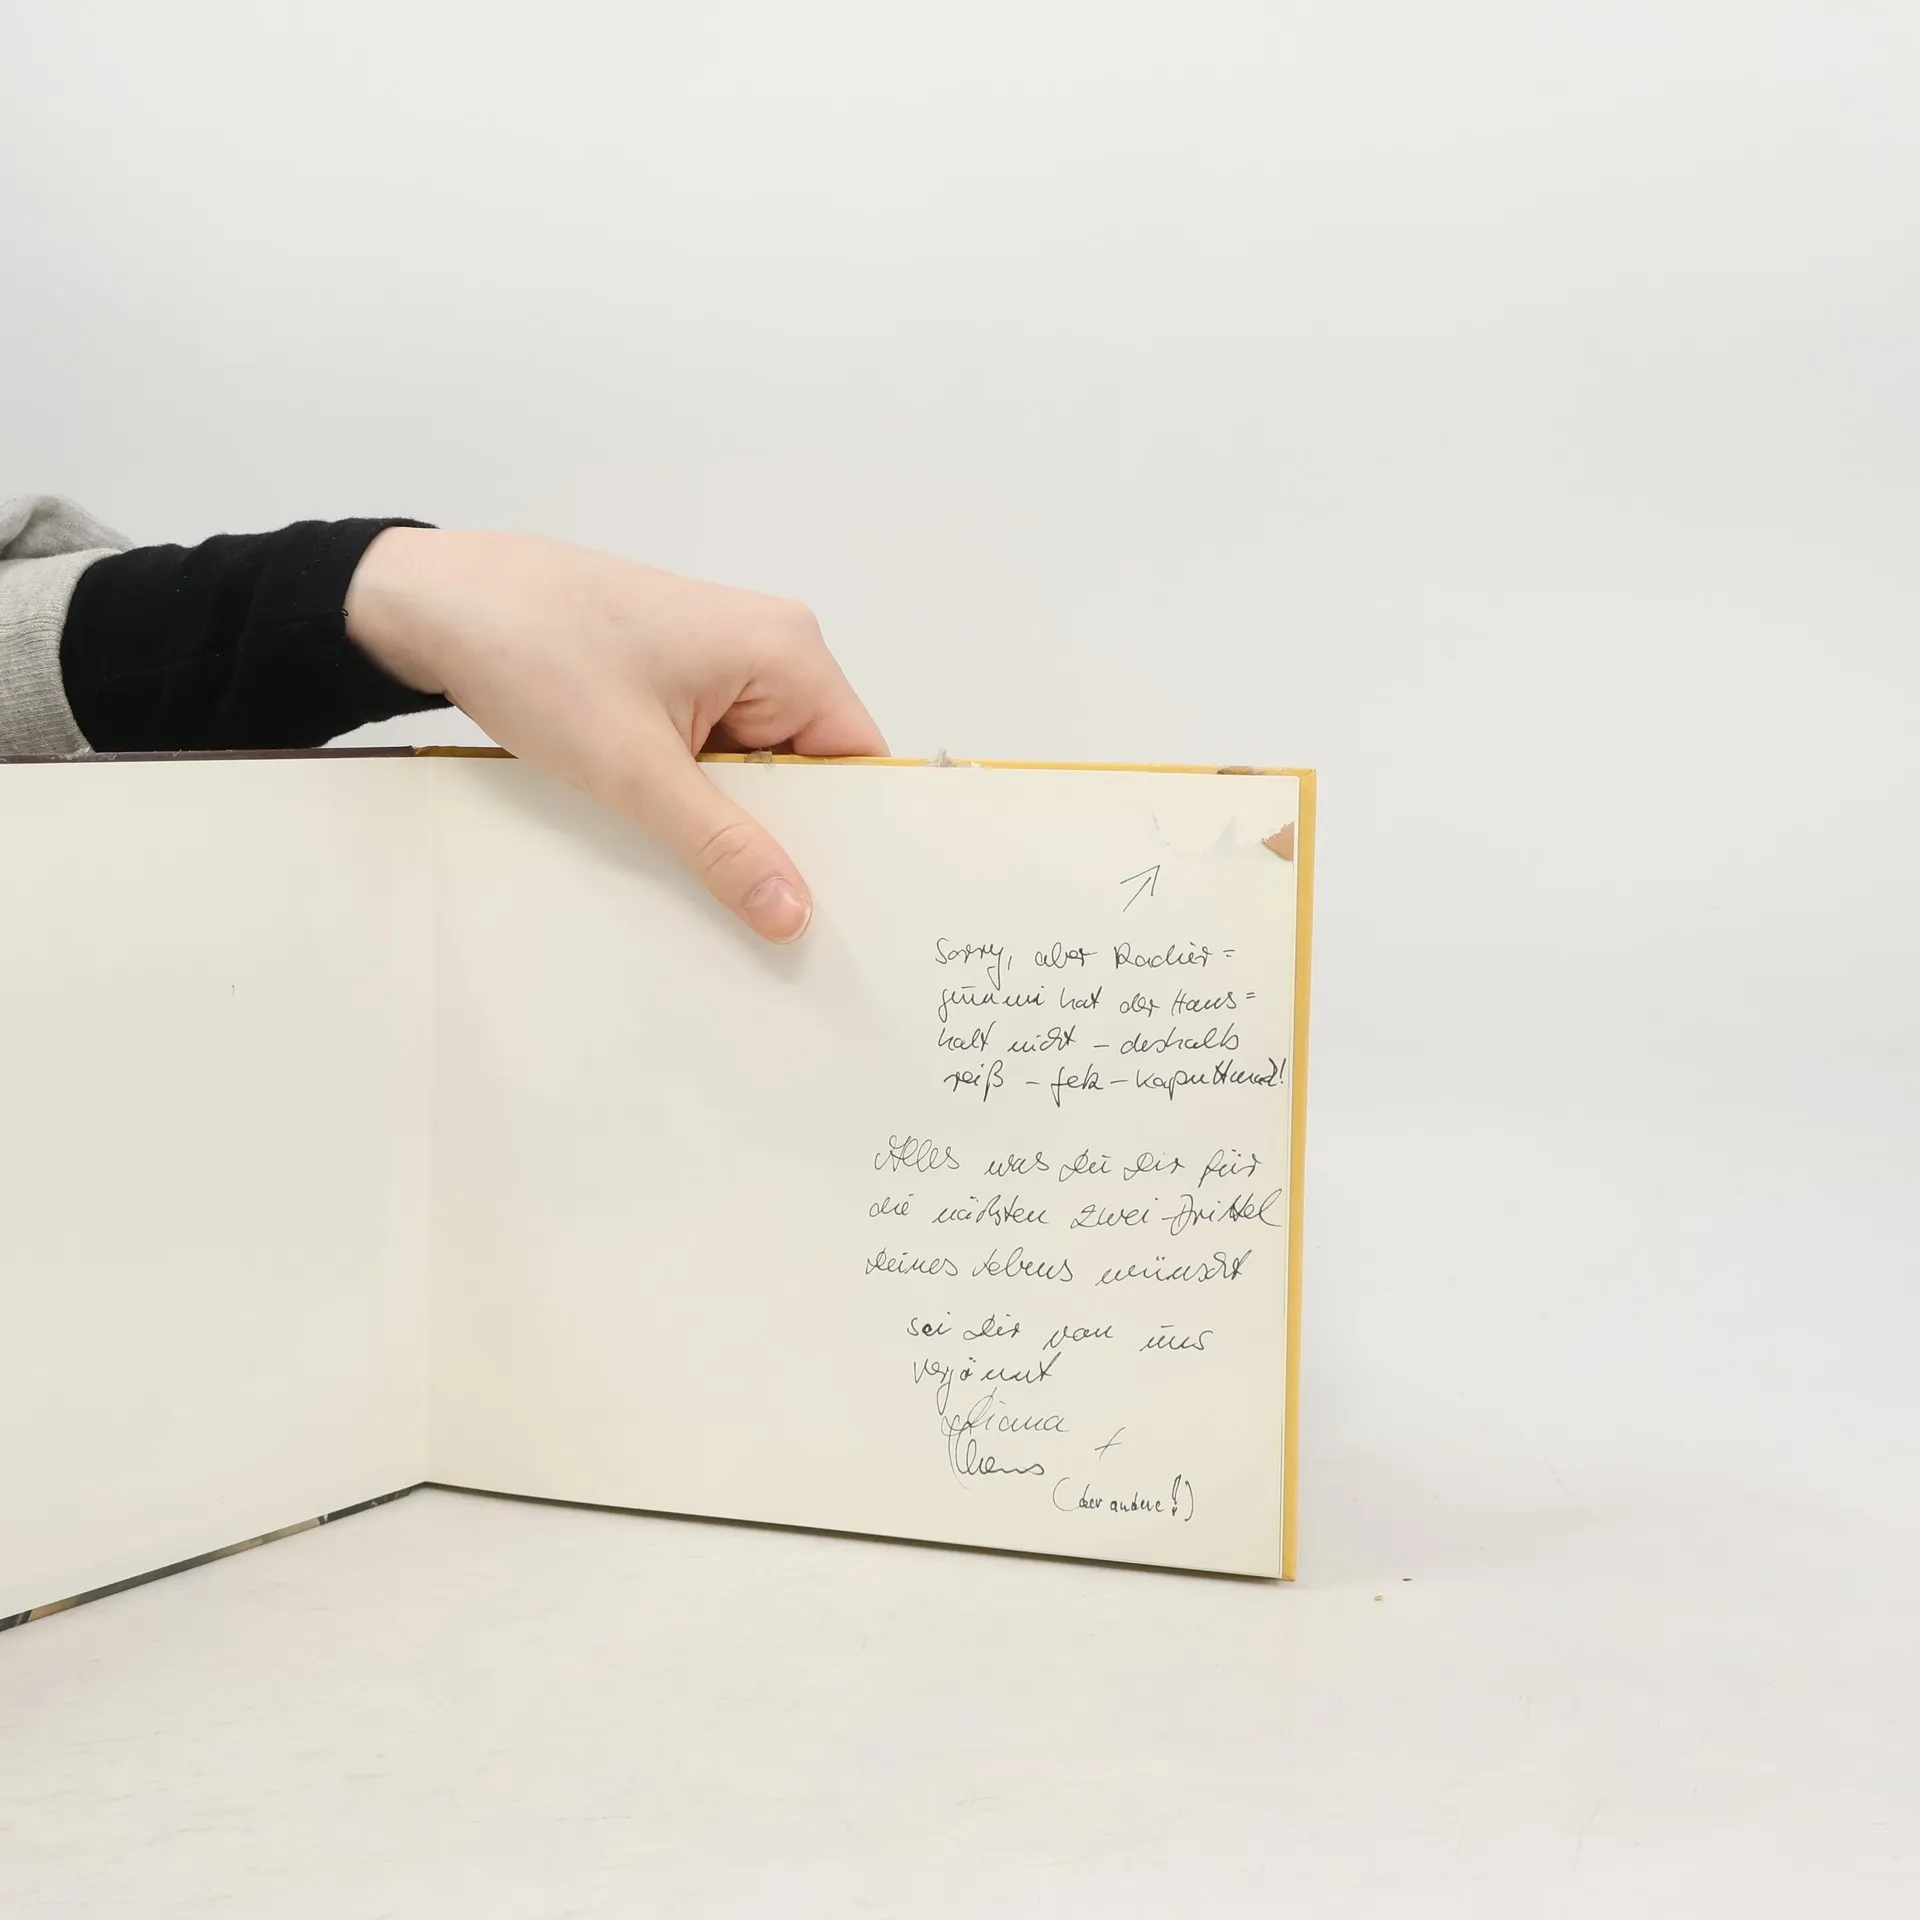 Sorry, aber Radier=
gummi hat der Haus=
halt nicht – deshalb
reiß – fetz – kaputt
Alles was Du Dir für
die nächsten zwei Drittel
Deines Lebens wünscht
sei Dir von uns
vergönnt
Diana +
(der andere!)